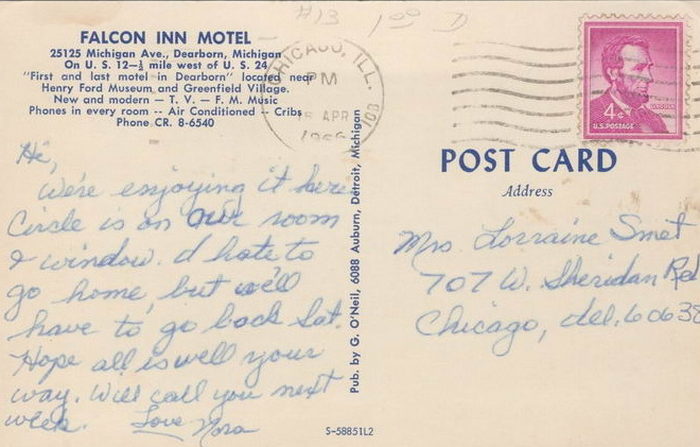 #13 1⁰⁰ D
FALCON INN MOTEL
25125 Michigan Ave., Dearborn, Michigan
On U. S. 12—½ mile west of U. S. 24
"First and last motel in Dearborn" located near
Henry Ford Museum and Greenfield Village.
New and modern — T. V. — F. M. Music
Phones in every room -- Air Conditioned -- Cribs
Phone CR. 8-6540
CHICAGO, ILL.
PM
APR
1966
4¢
LINCOLN
U.S. POSTAGE
Hi,
We're enjoying it here.
Circle is on our room
& window. I'd hate to
go home, but we'll
have to go back Sat.
Hope all is well your
way. Will call you next
week. Love Nora
Pub. by G. O'Neil, 6088 Auburn, Detroit, Michigan
POST CARD
Address
Mrs Lorraine Smet
707 W. Sheridan Rd
Chicago, Ill. 60638
S-58851L2